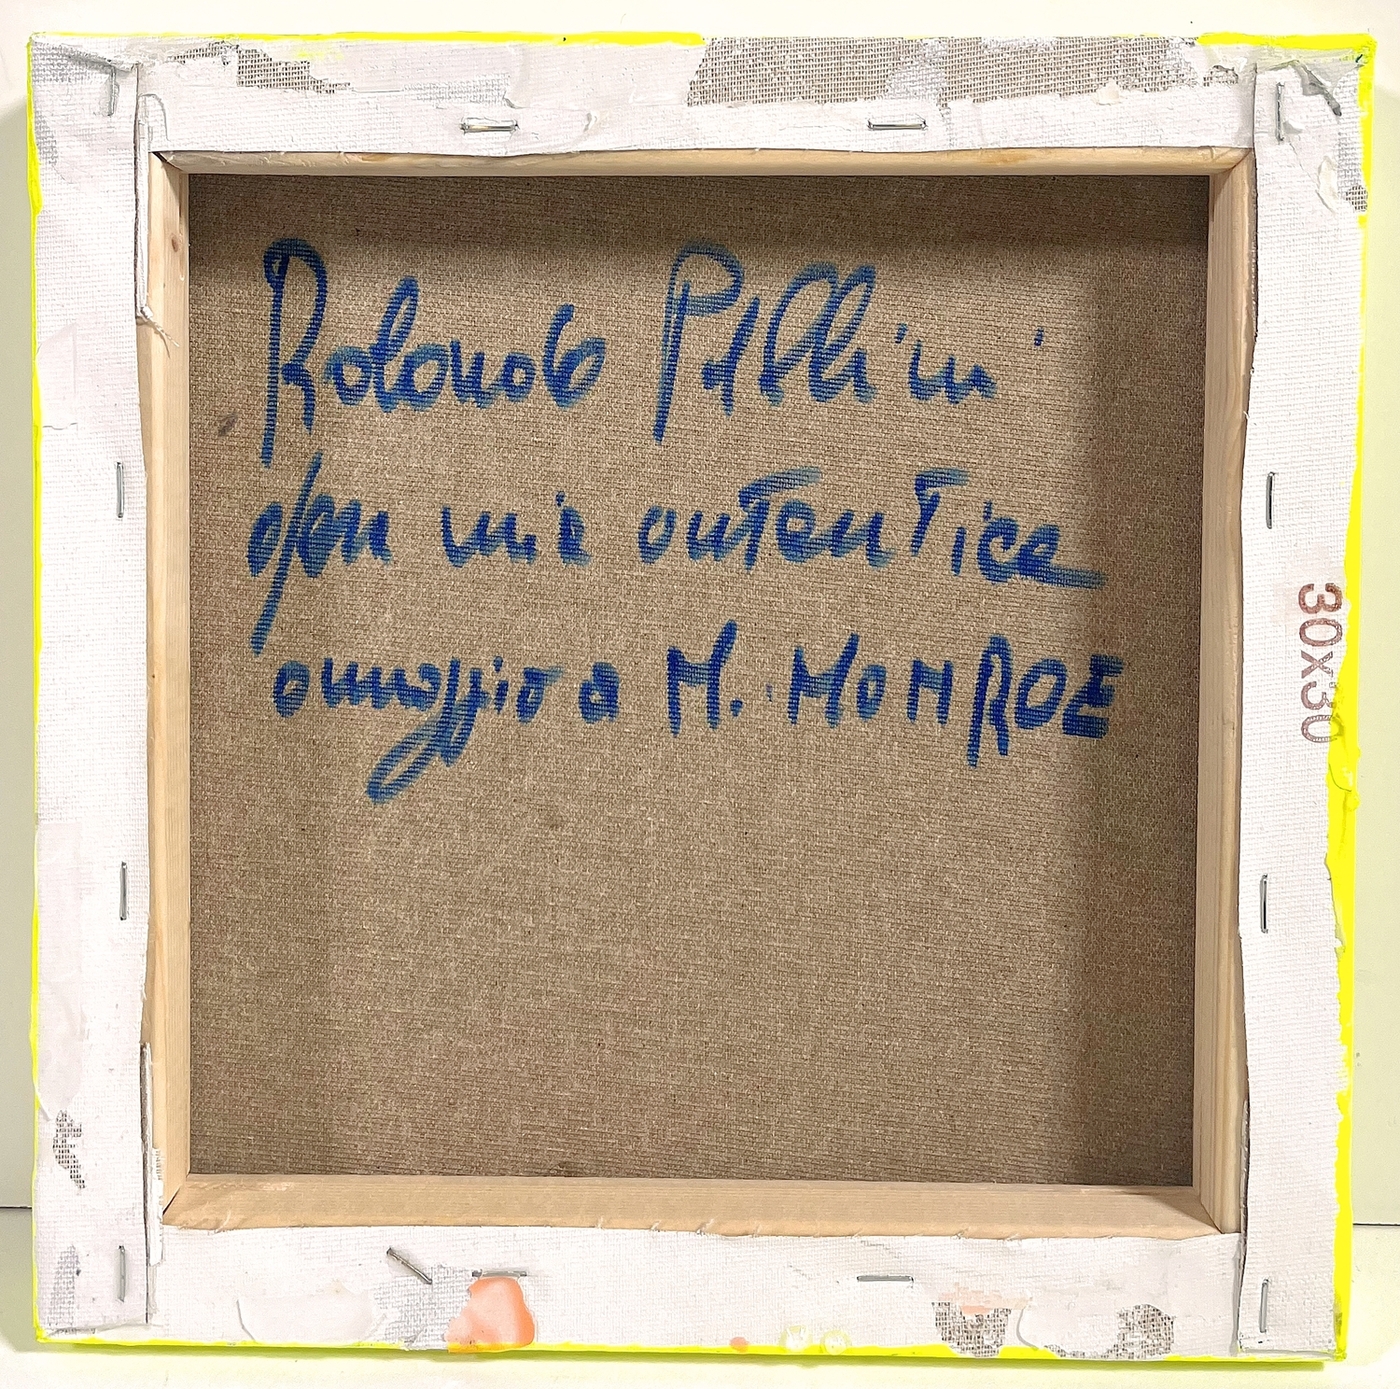 Rolando Pellini
opera mia autentica
omaggio a M. MONROE
30X30